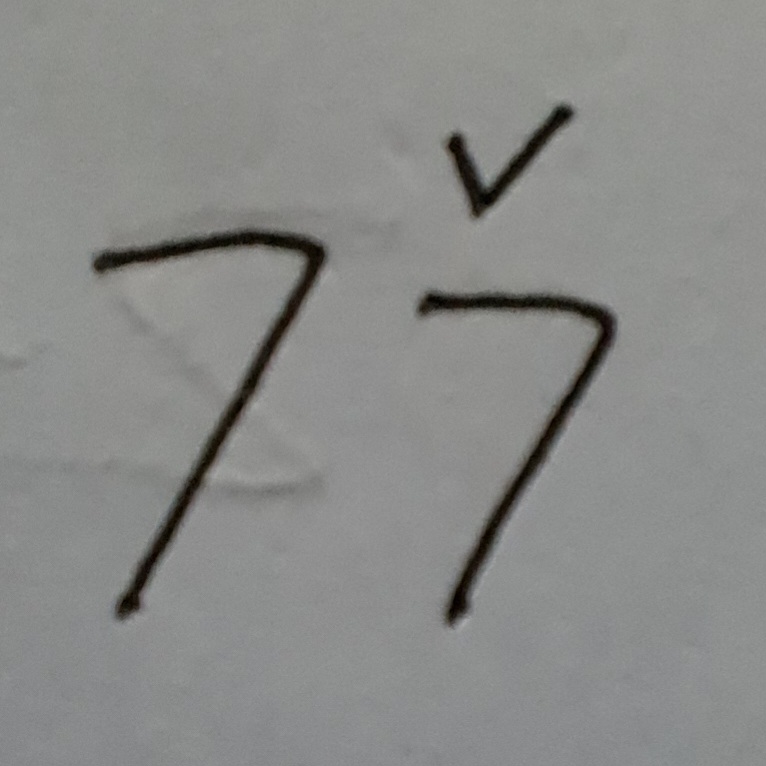 77̌